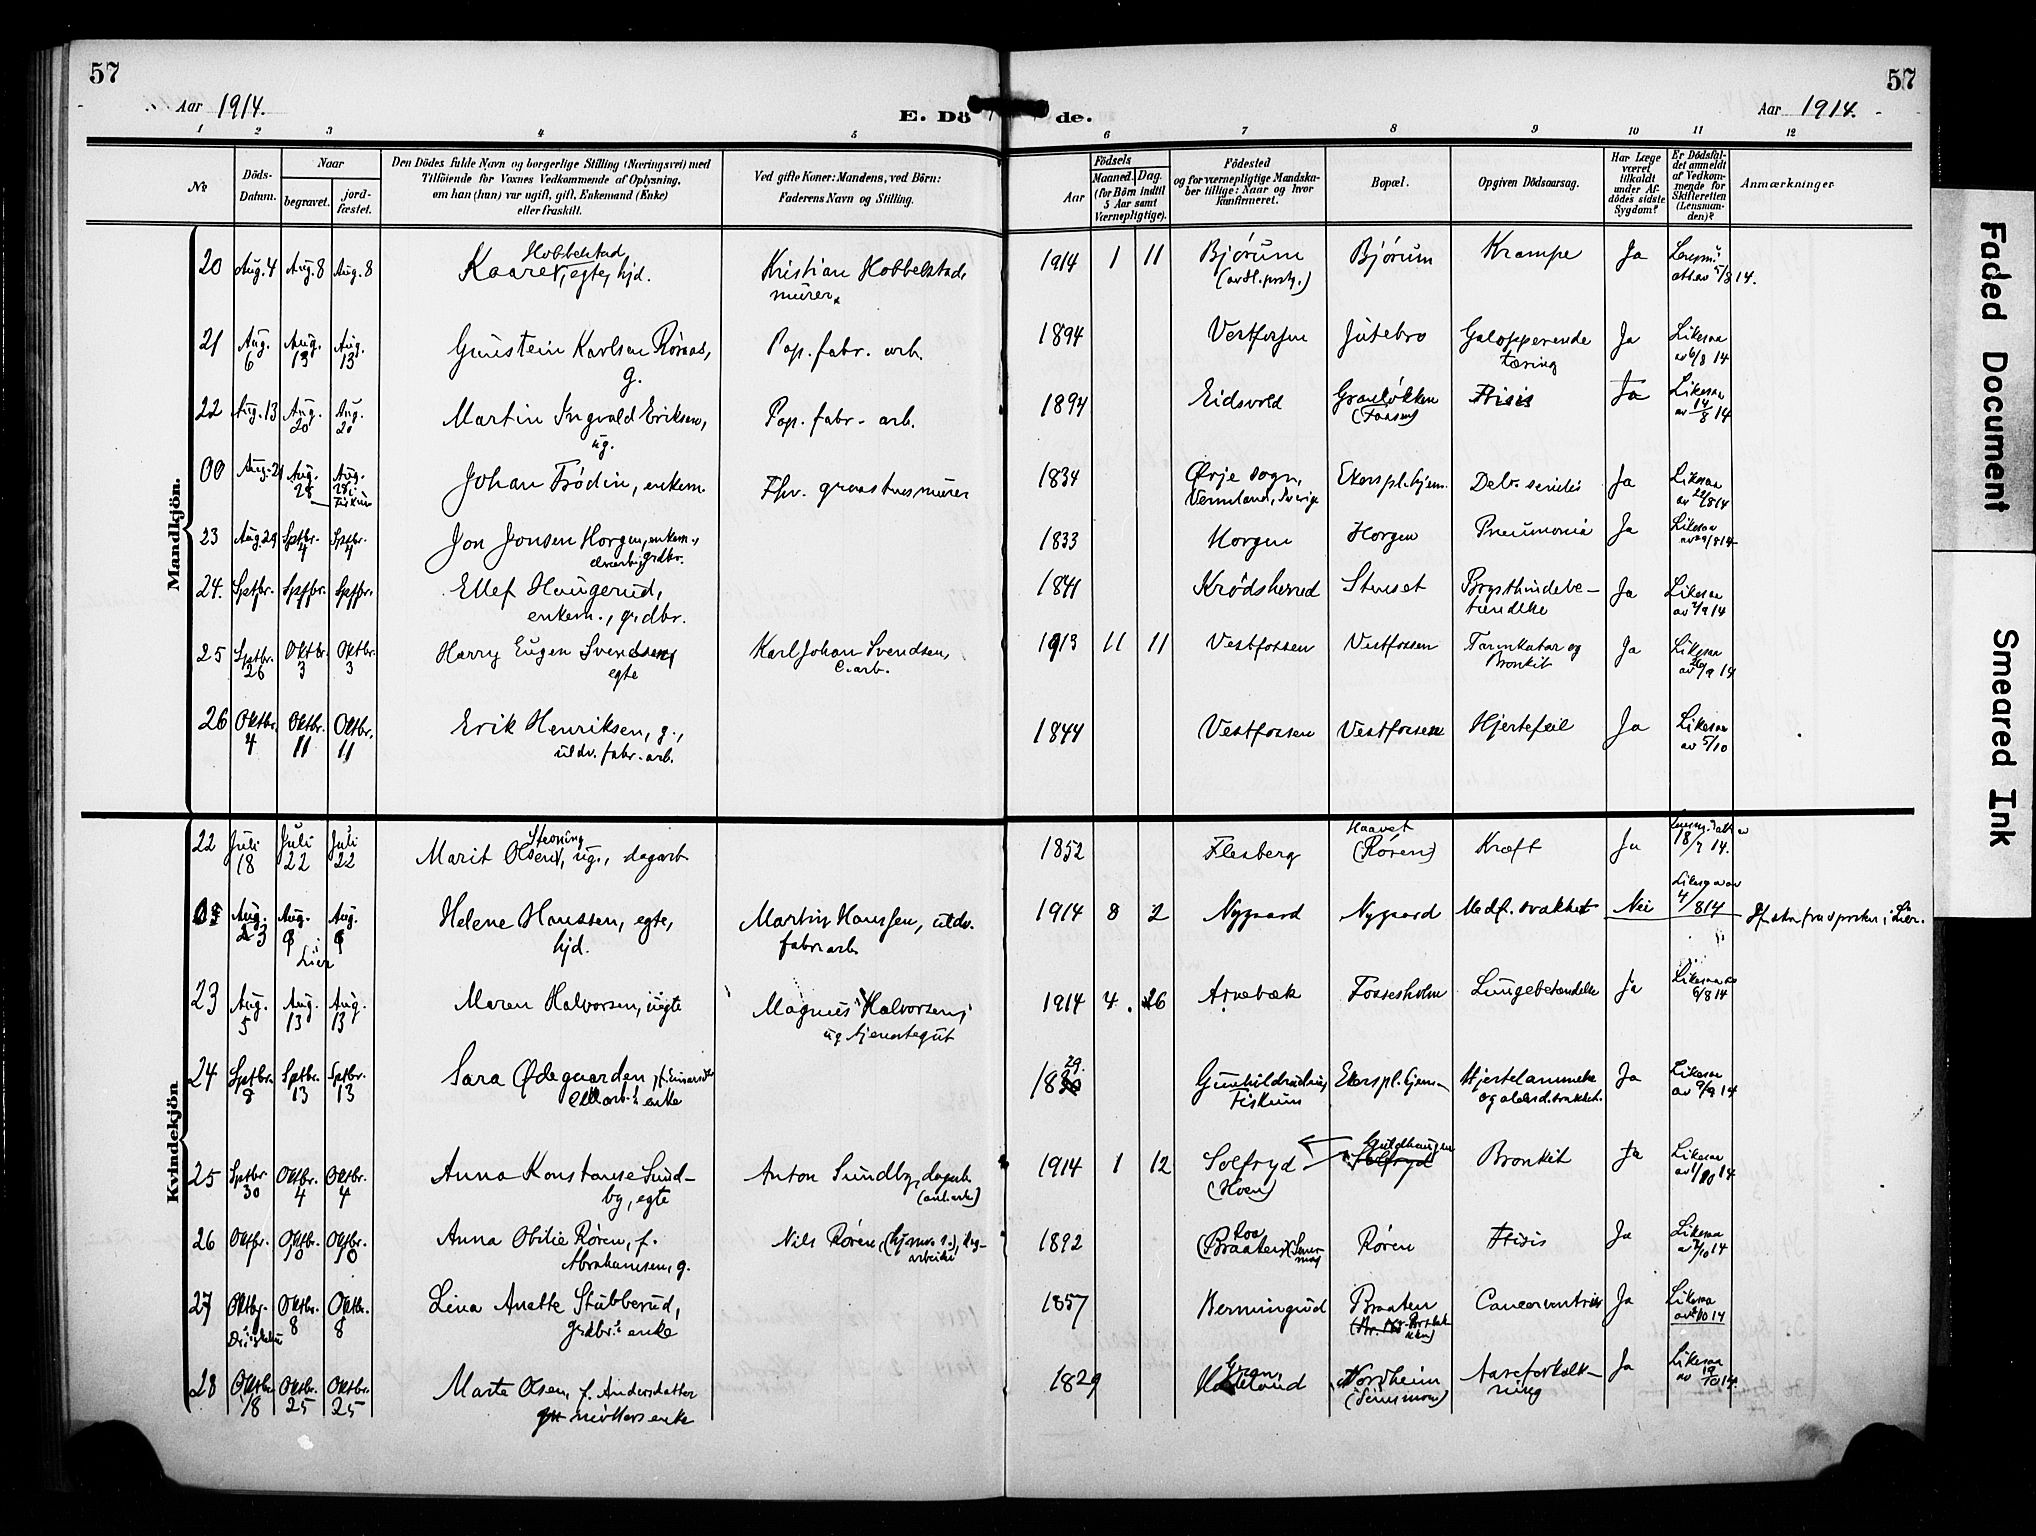 57
57
Aar 1914.
E. Dö de.
Aar 1914.
1 2 3 4 5 6 7 8 9 10 11 12
№
Döds-Datum.
Naar
begravet.
jord-fæstet.
Den Dödes fulde Navn og borgerlige Stilling (Næringsvei) med
Tilföiende for Voxnes Vedkommende af Oplysning,
om han (hun) var ugift, gift, Enkemand (Enke)
eller fraskilt.
Ved gifte Koner: Mandens, ved Börn:
Faderens Navn og Stilling.
Födsels
Aar
Maaned. Dag.
(for Börn indtil
5 Aar samt
Værnepligtige).
Födested
og for værnepligtige Mandska-
ber tillige: Naar og hvor
konfirmeret.
Bopæl.
Opgiven Dödsaarsag.
Har Læge
været
tilkaldt
under Af-
dödes sidste
Sygdom?
Er Dödsfal-
det anmeldt
af Vedkom-
mende for
Skifteretten
(Lensman-
den)?
Anmærkninger
Mandkjön.
20 Aug. 4 Aug. 8 Aug. 8 Kaare Hobbelstad, egte, hjd. Kristian Hobbelstad, murer 1914 1 11 Bjørum Bjørum Krampe Ja
21 Aug. 6 Aug. 13 Aug. 13 Gunstein Karlsen Røraas, g. Pap. fabr. arb. 1894 Vestfossen Jutebro Galopperende tæring Ja Likesaa av 6/8 14
22 Aug. 13 Aug. 20 Aug. 20 Martin Ingvald Eriksen, ug. Pap. fabr. arb. 1894 Eidsvold Granløkken Ftisis Ja Likesaa av 14/8 14
00 Aug. 21 Aug. 28 Aug. 28 i Fiskum Johan Frødin, enkem. Fhv. graastensmurer 1834 Ørje sogn, Vermland, Sverige Ekers pl. hjem Deb. senilis Ja Likesaa av 22/8 14
23 Aug 29 Sptbr. 4 Sptbr. 4 Jon Jonsen Horgen, enkem., grdbr. 1833 Horgen Horgen Pneumonia Ja Likesaa
24. Sptbr. Sptbr. Sptbr. Ellef Haugerud, enkem., grdbr. 1841 Krødsherred Stenset Brysthindebe-tændelse Ja Likesaa
25 Sptbr. 26 Oktbr. 3 Oktbr. 3 Harry Eugen Svendsen, egte Karl Johan Svendsen, c. arb. 1913 11 11 Vestfossen Vestfossen Tarmkatar og Bronkit Ja Likesaa av 26/9 14
26 Oktbr. 4 Oktbr. 11 Oktbr. 11 Erik Henriksen, g., uldv. fabr. arb. 1844 Vestfossen Vestfossen Hjertefeil Ja Likesaa av 5/10
Kvindekjön
22 Juli 18 Juli 22 Juli 22 Marit Olsen, ug., dagarb. 1852 Flesberg Haavet (Røren) Kræft Ja 18/7 14.
Aug. 3 Aug. 8 Lier Aug. 8 Helene Hanssen, egte, hjd. Martin Hanssen, uldv. fabr. arb. 1914 8 2 Nygaard Nygaard Medf. svakhet Nei 4/8 14
23 Aug. 5 Aug. 13 Aug. 13 Maren Halvorsen, uegte Magnus Halvorsen, ug tjenestegut 1914 4. 26 Arnebæk Fossesholm Lungebetændelse Ja Likesaa 6/8 14
24 Sptbr. 8 Sptbr. 13 Sptbr. 13 Sara Ødegaarden, enke 1829. Gunhildrud Fiskum Ekers pl. hjem Hjertelammelse og alderd. svakhet. Ja Likesaa av 9/9 14
25 Sptbr 30 Oktbr. 4 Oktbr. 4 Anna Konstanse Sund-by, egte Anton Sundby, dagarb. 1914 1 12 Solfryd (Hoen) Guldhaugen Solfryd Bronkit Ja Likesaa av 1/10 14
26 Oktbr. Oktbr. 10 Oktbr. 10 Anna Otilie Røren, f. Abrahamsen, g. Nils Røren, arbeider 1892 (Braaten) Røren Ftisis Ja Likesaa
27 Oktbr. Oktbr. 8 Oktbr. 8 Lina Anette Stubberud, grdbr.s enke 1857 Bermingrud Braaten Cancer ventriculi Ja Likesaa
28 Oktbr. 18 Oktbr. 25 Oktbr. 25 Marte Olsen, f. Andersdatter enke 1829 Gran, Hadeland Nordheim Aareforkalk-ning Ja Likesaa av 19/10 14.
Faded Document
Smeared Ink